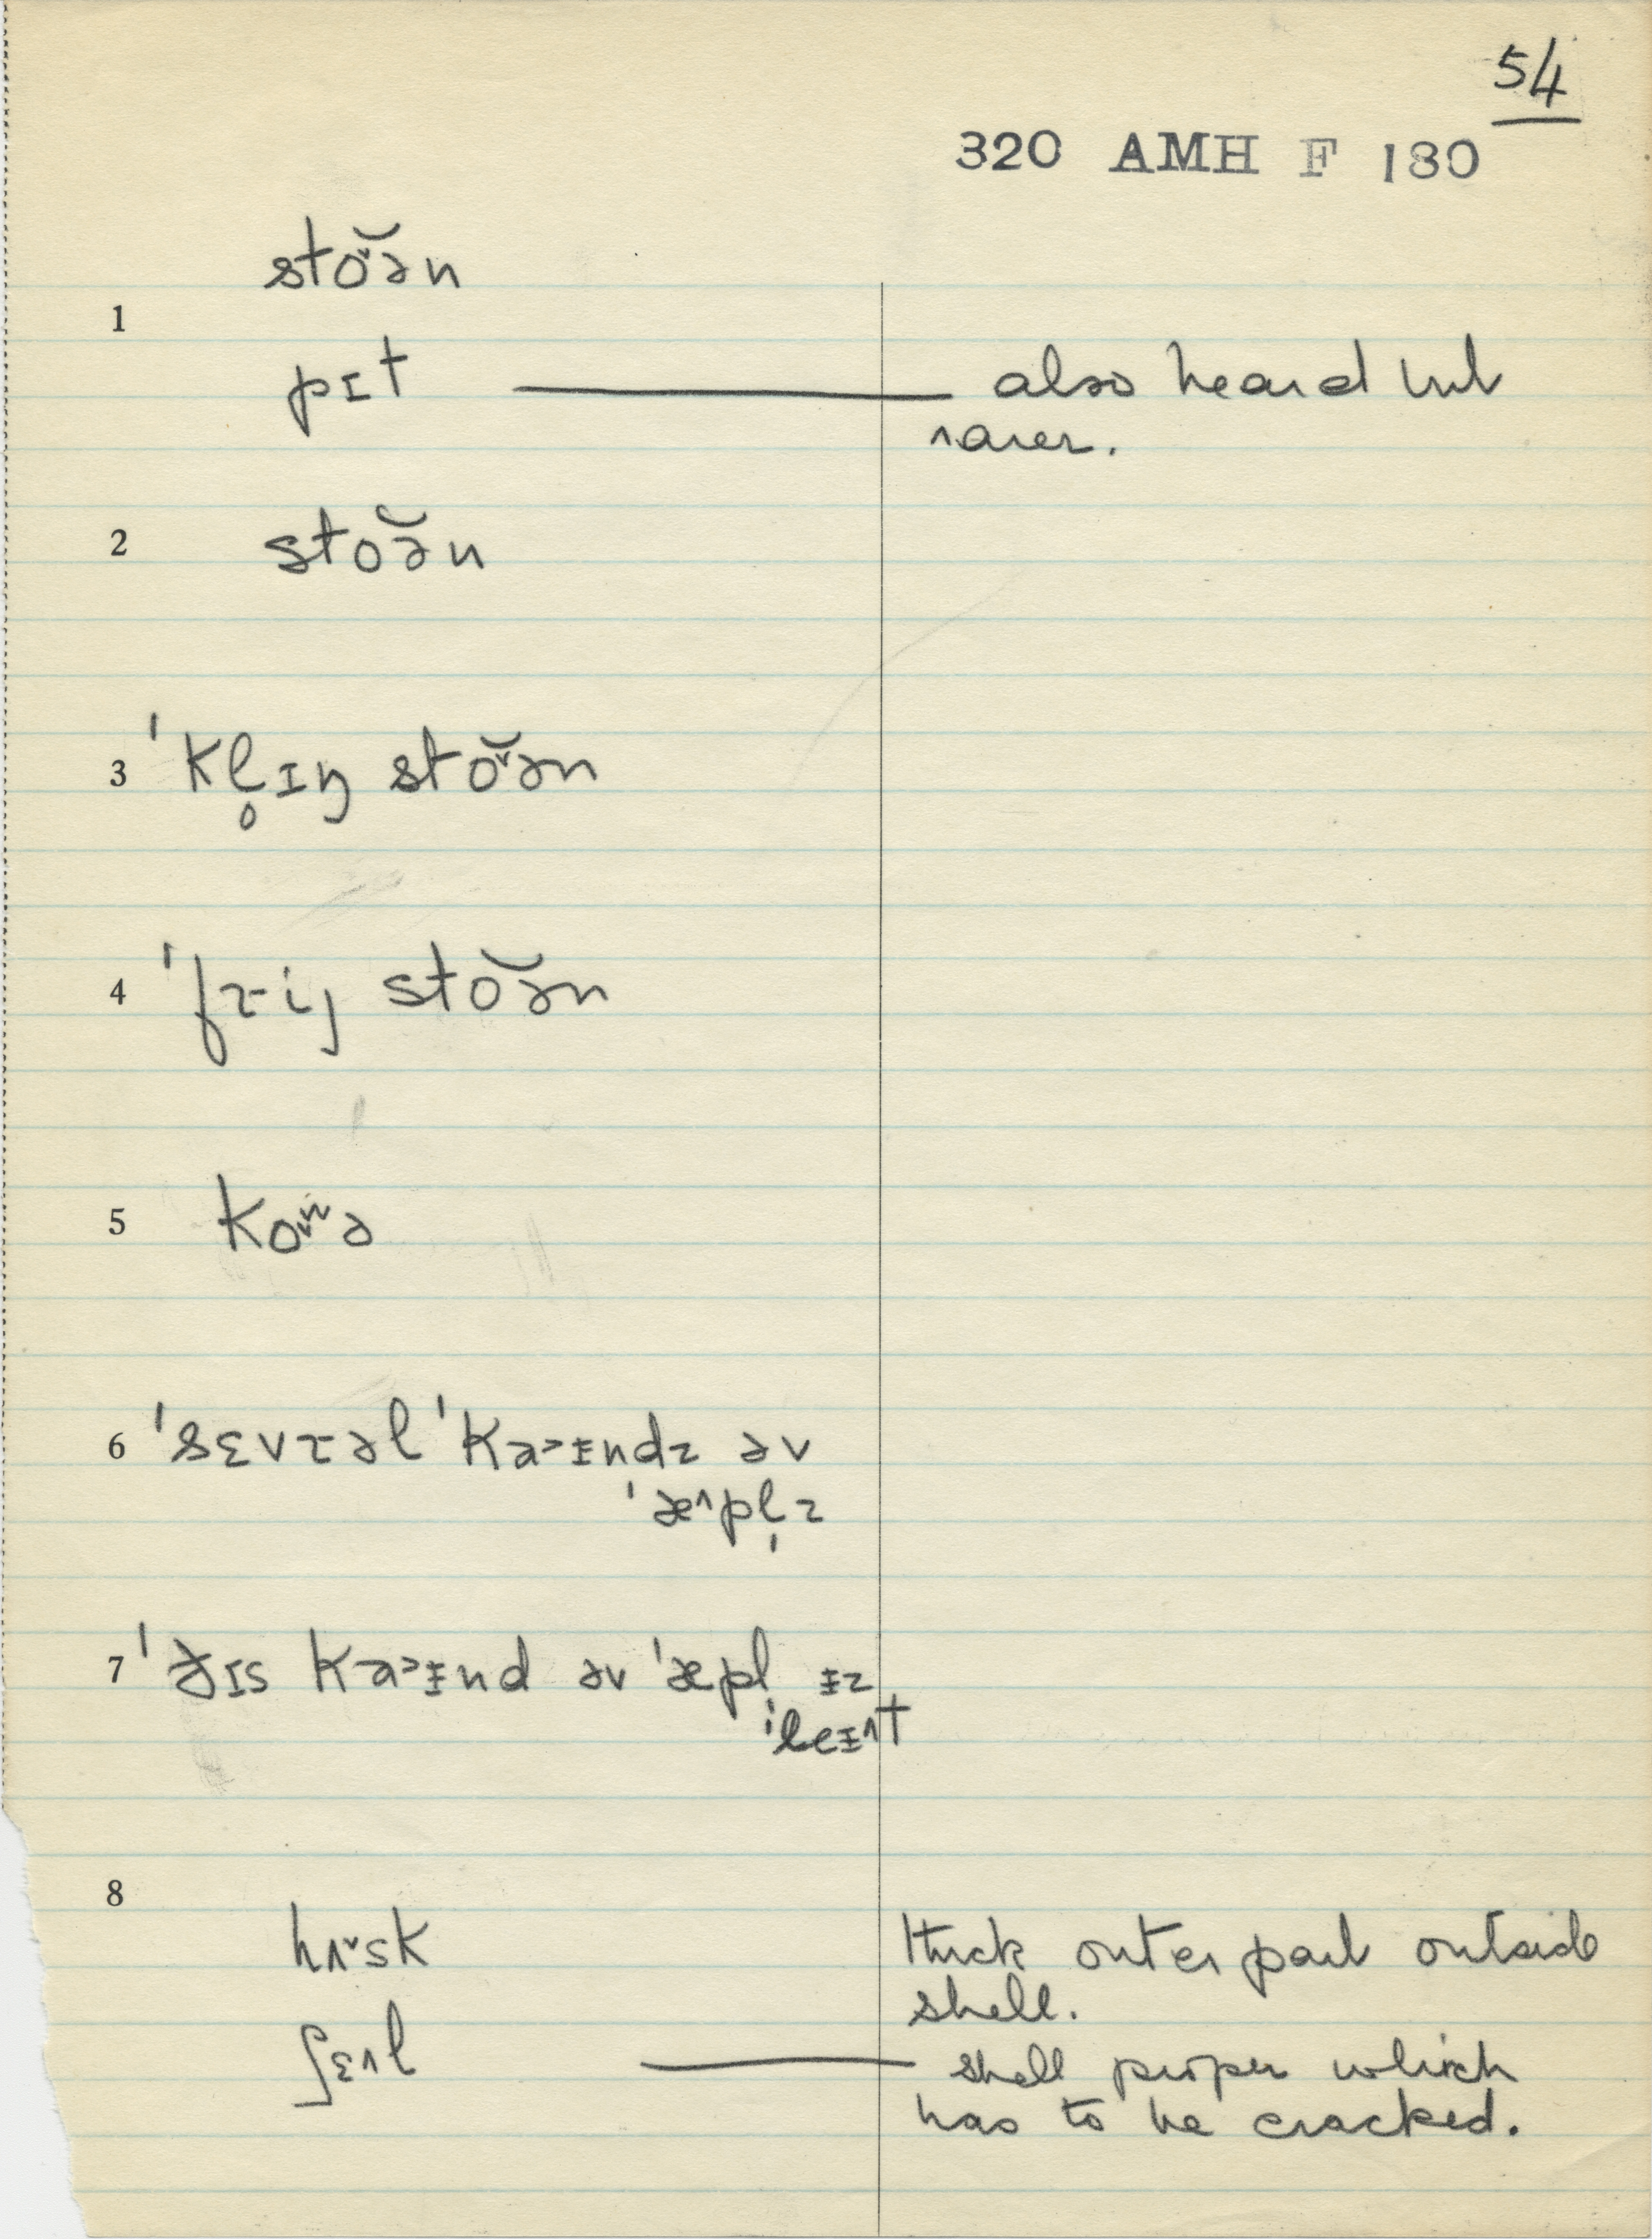 54
320 AMH F 180
sto˅ə̆n
1
pɪt — also heard but
rarer.
2 stoə̆n
3 ˈkl̥ɪŋ sto˅ə̆n
4 ˈfɹij stoə̆n
5 ko˅ᵻə
6 ˈsɛvɹəl ˈka˃ᵻndz əv
ˈæ˄pl̩z
7 ˈðɪs ka˃ᵻnd əv ˈæpl̩ ᵻz
ˈleᵻ˄t
8
hʌ˅sk thick outer part outside
shell.
ʃɛ˄l — shell proper which
has to be cracked.